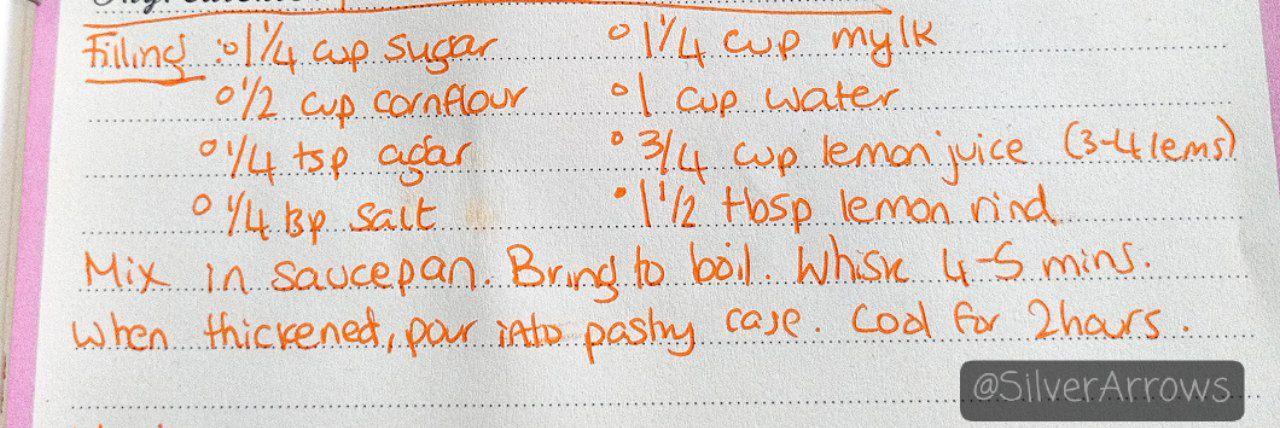 Filling : ° 1 1/4 cup sugar ° 1 1/4 cup mylk
° 1/2 cup cornflour ° 1 cup water
° 1/4 tsp agar ° 3/4 cup lemon juice (3-4 lems)
° 1/4 tsp salt • 1 1/2 tbsp lemon rind
Mix in saucepan. Bring to boil. Whisk 4-5 mins.
When thickened, pour into pastry case. Cool for 2 hours.
@SilverArrows